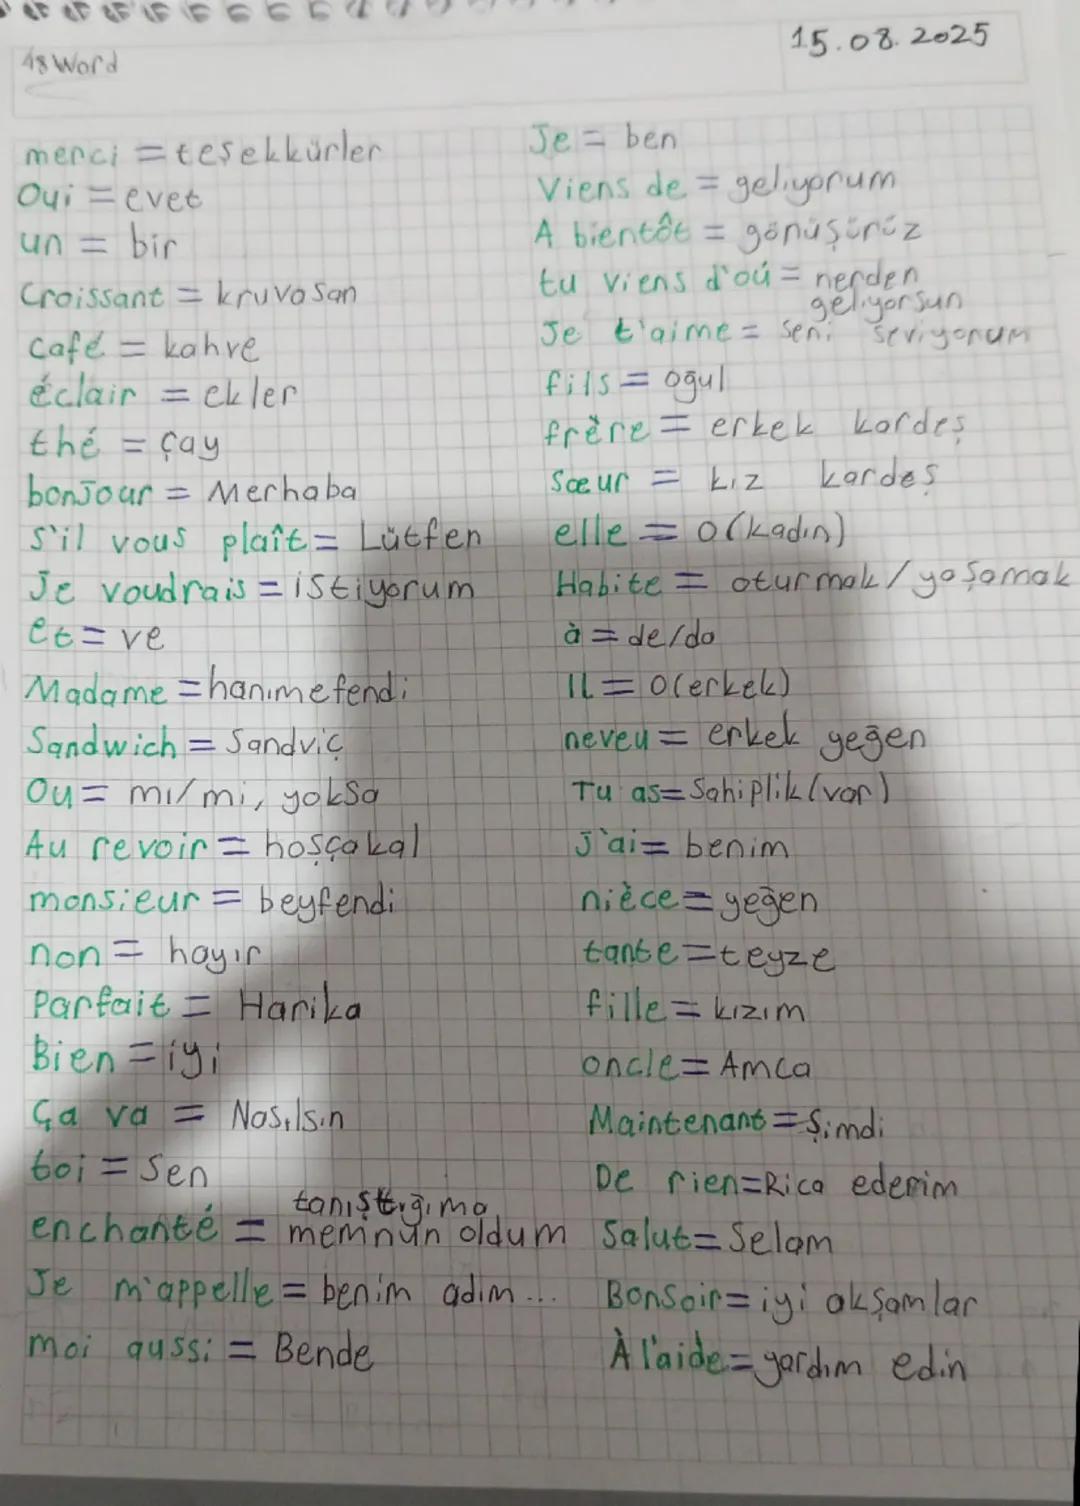 48 Word
15.08.2025
merci = teşekkürler
Oui = evet
un = bir
Croissant = kruvasan
café = kahve
éclair = ekler
thé = çay
bonJour = Merhaba
s'il vous plaît = Lütfen
Je voudrais = istiyorum
et = ve
Madame = hanımefendi
Sandwich = Sandviç
Ou = mı/mi, yoksa
Au revoir = hoşçakal
monsieur = beyfendi
non = hayır
Parfait = Harika
Bien = iyi
Ça va = Nasılsın
toi = Sen
enchanté = tanıştığıma
memnun oldum
Je m'appelle = benim adım...
moi aussi = Bende
Je = ben
Viens de = geliyorum
A bientôt = görüşürüz
tu viens d'où = nerden
geliyorsun
Je t'aime = seni seviyorum
fils = oğul
frère = erkek kardeş
Sœur = kız kardeş
elle = o(kadın)
Habite = oturmak/yaşamak
à = de/da
IL = O(erkek)
neveu = erkek yeğen
Tu as = Sahiplik(var)
J'ai = benim
nièce = yeğen
tante = teyze
fille = kızım
oncle = Amca
Maintenant = Şimdi
De rien = Rica ederim
Salut = Selam
Bonsoir = iyi akşamlar
À l'aide = yardım edin